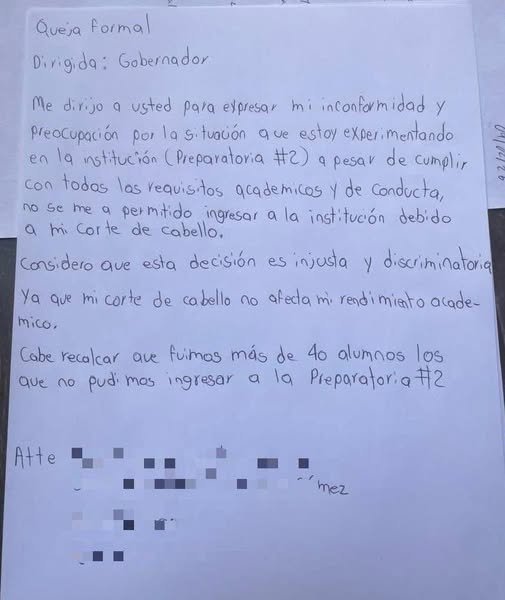 Queja formal
Dirigida: Gobernador
Me dirijo a usted para expresar mi inconformidad y
preocupación por la situación que estoy experimentando
en la institución (Preparatoria #2) a pesar de cumplir
con todos los requisitos academicos y de conducta,
no se me a permitido ingresar a la institución debido
a mi corte de cabello.
Considero que esta decisión es injusta y discriminatoria
Ya que mi corte de cabello no afecta mi rendimiento acade-
mico.
Cabe recalcar que fuimos más de 40 alumnos los
que no pudimos ingresar a la Preparatoria #2
Atte
mez